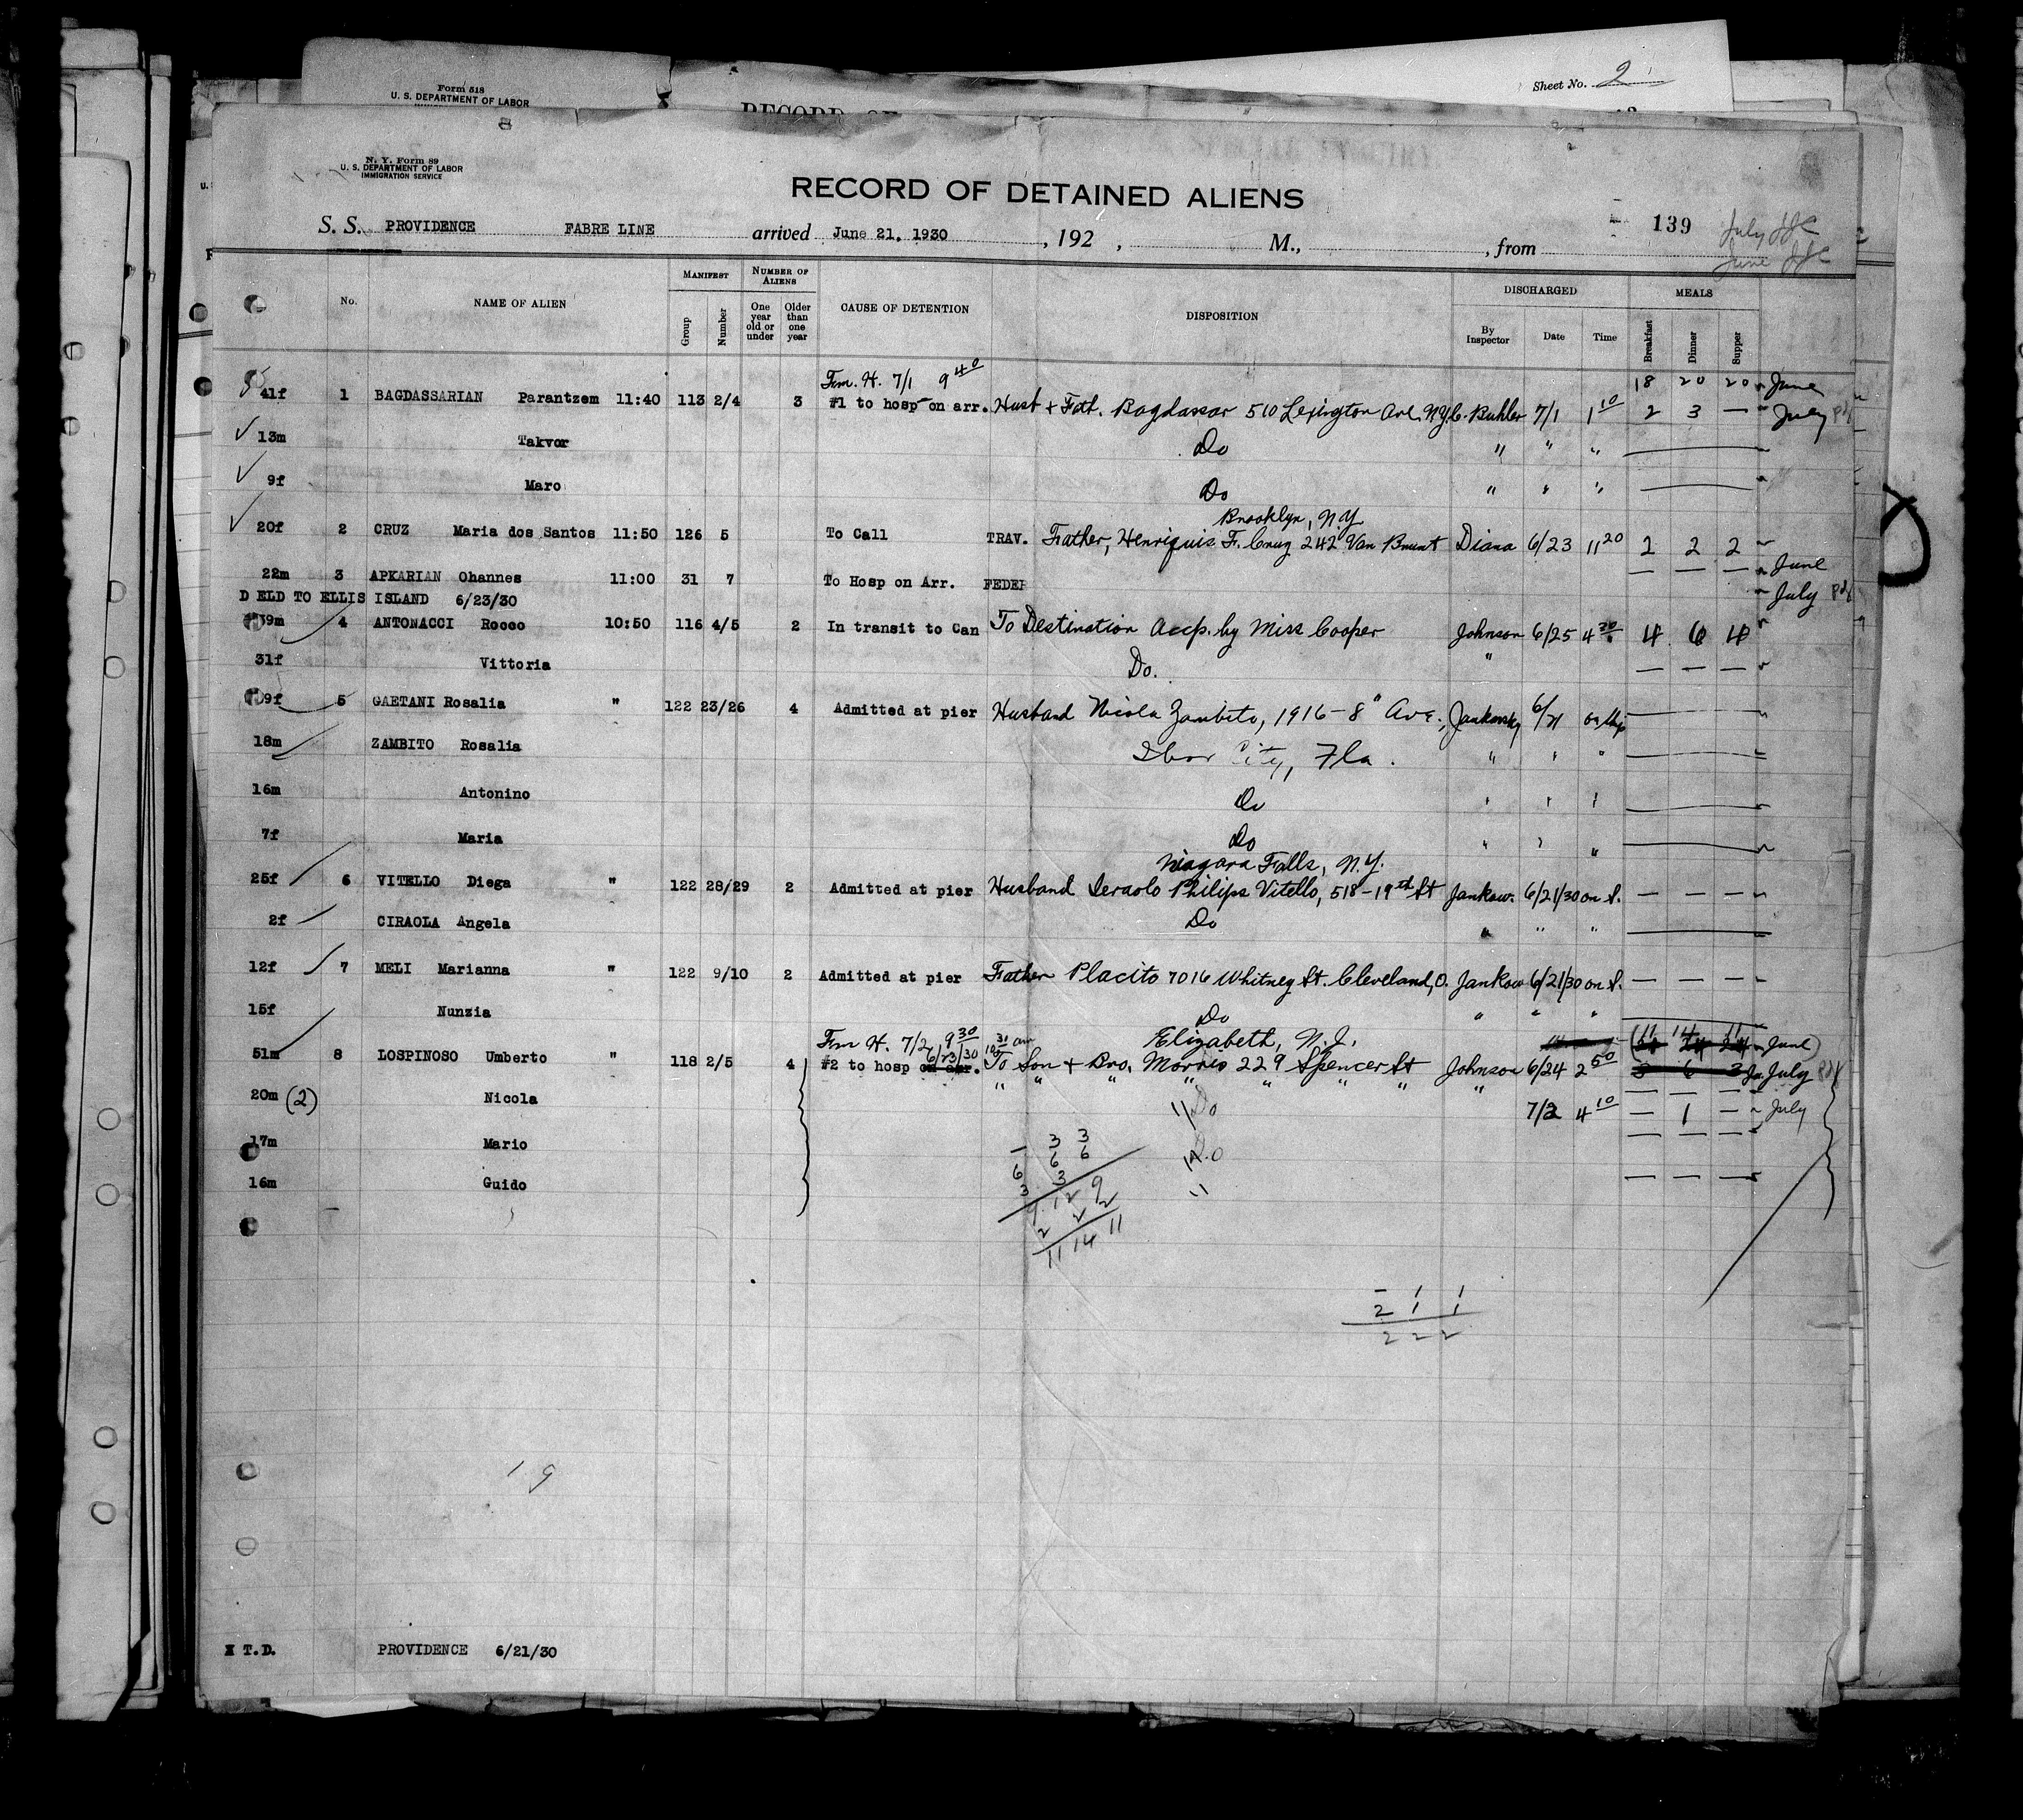 Form 518
U. S. DEPARTMENT OF LABOR
Sheet No. 2
N. Y. Form 89
U. S. DEPARTMENT OF LABOR
IMMIGRATION SERVICE
RECORD OF DETAINED ALIENS
139
July
June
S. S. PROVIDENCE FABRE LINE arrived June 21, 1930, 192 , M., , from
No. NAME OF ALIEN MANIFEST Group Number NUMBER OF ALIENS One year old or under Older than one year CAUSE OF DETENTION DISPOSITION DISCHARGED By Inspector Date Time MEALS Breakfast Dinner Supper
Fm. H. 7/1 9 40 18 20 20 June
41f 1 BAGDASSARIAN Parantzem 11:40 113 2/4 3 #1 to hosp on arr. Hust + Fath. Bagdassar 510 Lexington Ave. N.Y.C. Buhler 7/1 1 10 2 3 — " July
13m Takvor Do " " "
9f Maro Do " " "
Brooklyn, N.Y.
20f 2 CRUZ Maria dos Santos 11:50 126 5 To Call TRAV. Father, Henriquis F. Cruz 242 Van Brunt Diana 6/23 11 20 2 2 2
22m 3 APKARIAN Ohannes 11:00 31 7 To Hosp on Arr. FEDER — — — " June
D ELD TO ELLIS ISLAND 6/23/30 " July
39m 4 ANTONACCI Rocco 10:50 116 4/5 2 In transit to Can To Destination Accp. by Miss Cooper Johnson 6/25 4 30 4 6 4
31f Vittoria Do. " — — —
9f 5 GAETANI Rosalia " 122 23/26 4 Admitted at pier Husband Nicola Zambito, 1916 - 8" Ave., Jankowsky 6/21 on ship
18m ZAMBITO Rosalia Ibor City, Fla. " " "
16m Antonino Do " " "
7f Maria Do " " "
Niagara Falls, N.Y.
25f 6 VITELLO Diega " 122 28/29 2 Admitted at pier Husband Ceraolo Philips Vitello, 518-19th St Jankow. 6/21/30 on S. — — —
2f CIRAOLA Angela Do " " "
12f 7 MELI Marianna " 122 9/10 2 Admitted at pier Father Placito 7016 Whitney St. Cleveland, O. Jankow 6/21/30 on S. — — —
15f Nunzia Do " " "
Fm H. 7/2 9 30 Elizabeth, N.J. (11 14 11 June)
6/23/30 10 30 am
51m 8 LOSPINOSO Umberto " 118 2/5 4 #2 to hosp on arr. To Son + Bro. Morris 229 Spencer St Johnson 6/24 2 50 3 6 3 July
" " " " " " " "
20m (2) Nicola " Do 7/2 4 10 — 1 — " July
17m Mario " Do — — —
16m Guido " — — —
— 3 3
6 6 6
3 3
9 12 9
2 2 2
11 14 11
— 1 1
2 1 1
2 2 2
19
X T.D. PROVIDENCE 6/21/30